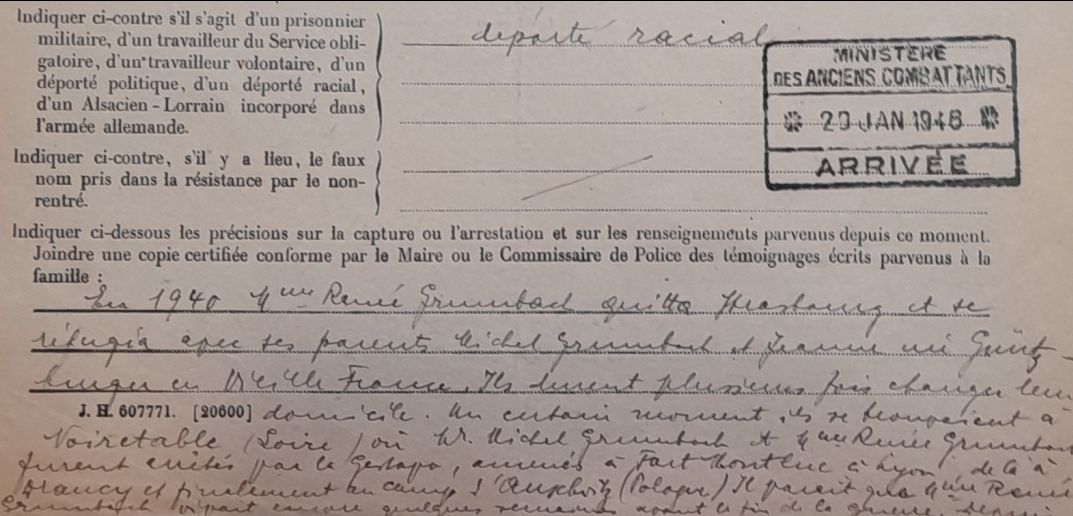 Indiquer ci-contre s'il s'agit d'un prisonnier
militaire, d'un travailleur du Service obli-
gatoire, d'un travailleur volontaire, d'un
déporté politique, d'un déporté racial,
d'un Alsacien-Lorrain incorporé dans
l'armée allemande.
déporté racial
MINISTÈRE
DES ANCIENS COMBATTANTS
29 JAN 1948
ARRIVÉE
Indiquer ci-contre, s'il y a lieu, le faux
nom pris dans la résistance par le non-
rentré.
Indiquer ci-dessous les précisions sur la capture ou l'arrestation et sur les renseignements parvenus depuis ce moment.
Joindre une copie certifiée conforme par le Maire ou le Commissaire de Police des témoignages écrits parvenus à la
famille :
En 1940 Mme Renée Grumbach quitta Strasbourg et se
réfugia avec ses parents Michel Grumbach et Jeanne née Güntz-
burger en Vieille France. Ils durent plusieurs fois changer leur
J. H. 607771. [20600] domicile. Un certain moment, ils se trouvaient à
Noiretable (Loire) où Mr. Michel Grumbach et Mme Renée Grumbach
furent arrêtés par la Gestapo, amenés à Fort Montluc à Lyon, de là à
Drancy et finalement au camp d'Auschwitz (Pologne) Il paraît que Mme Renée
Grumbach vivait encore quelques semaines avant la fin de la guerre.